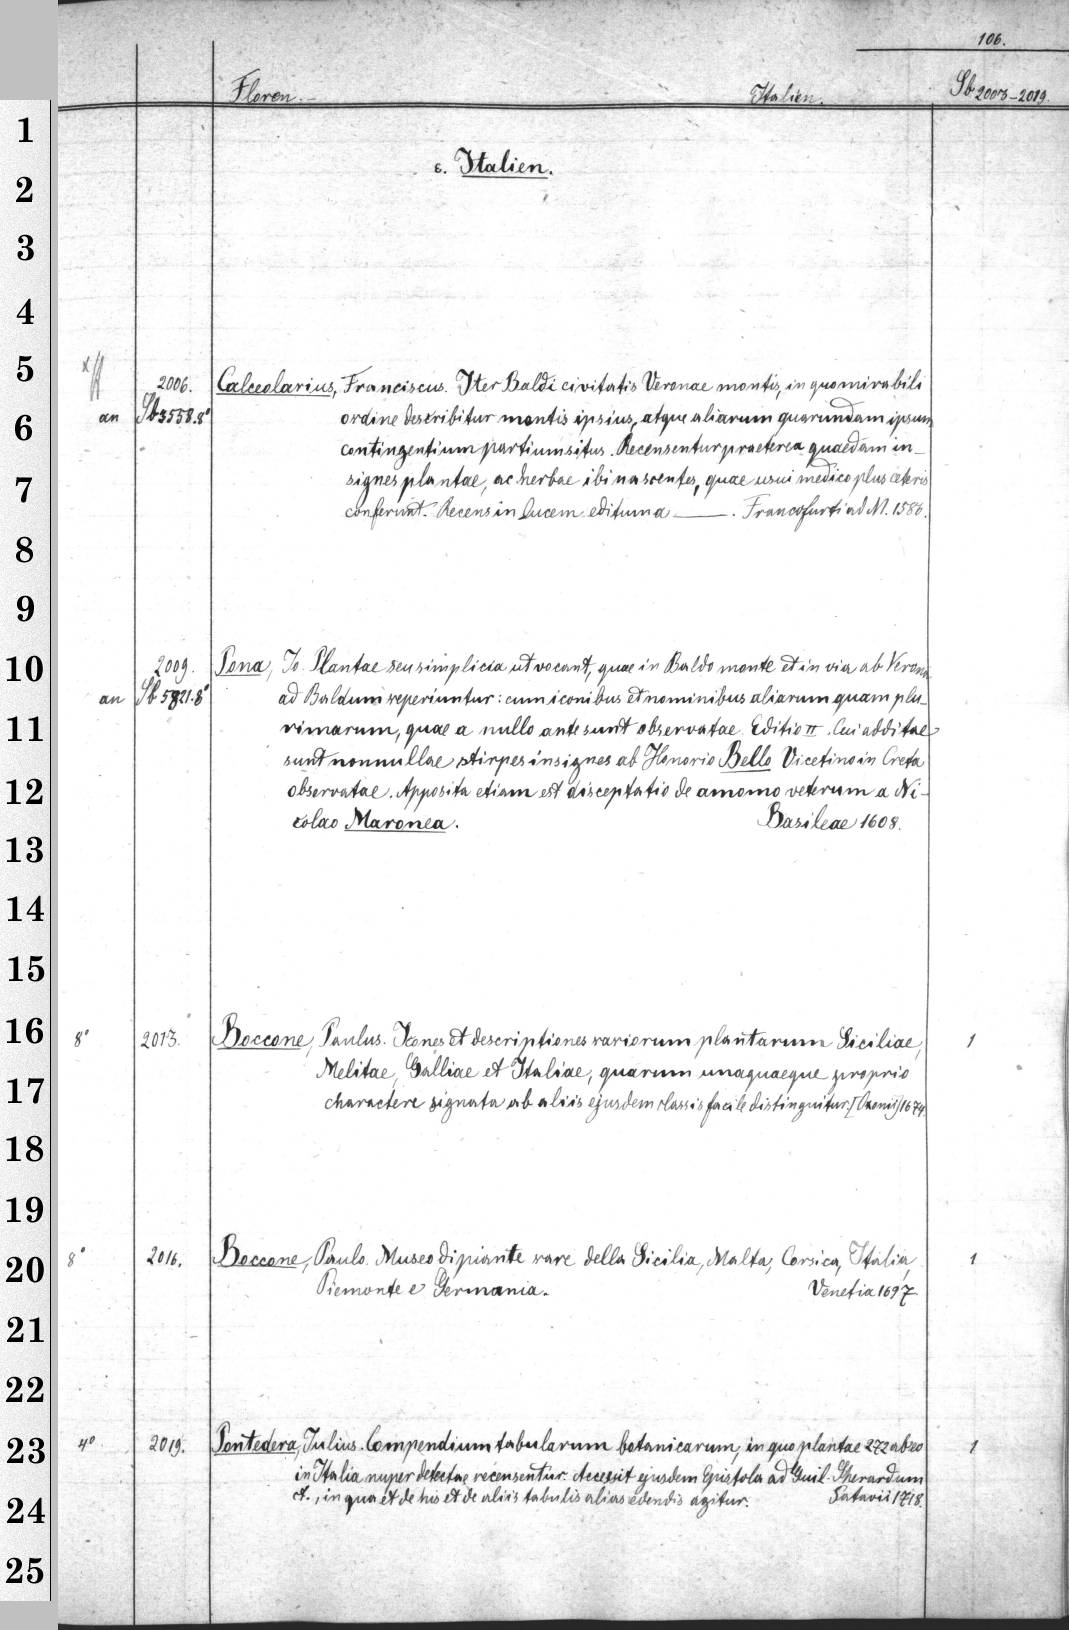 106.
Floren. — Italien. Sb 2003–2019.
s. Italien.
2006. Calceolarius, Franciscus. Iter Baldi civitatis Veronae montis, in quo mirabili
an Sb 3558.8° ordine describitur montis ipsius, atque aliarum quarundam ipsum
contingentium partium situs. Recensentur praeterea quaedam in-
signes plantae, ac herbae ibi nascentes, quae usui medico plus ceteris
conferunt. Recens in lucem editum a ——. Francofurti ad M. 1586.
2009. Pona, Jo. Plantae seu simplicia ut vocant, quae in Baldo monte et in via ab Verona
an Sb 5821.8° ad Baldum reperiuntur: cum iconibus et nominibus aliarum quam plu-
rimarum, quae a nullo ante sunt observatae. Editio II. Cui additae
sunt nonnullae stirpes insignes ab Honorio Bello Vicetino in Creta
observatae. Apposita etiam est disceptatio de amomo veterum a Ni-
colao Maronea. Basileae 1608.
8° 2013. Boccone, Paulus. Icones et descriptiones variorum plantarum Siciliae, 1
Melitae, Galliae et Italiae, quarum unaquaeque proprio
charactere signata ab aliis ejusdem classis facile distinguitur. [Oxonii] 1674.
8° 2016. Boccone, Paulo. Museo di piante rare della Sicilia, Malta, Corsica, Italia, 1
Piemonte e Germania. Venetia 1697
4° 2019. Pontedera, Julius. Compendium tabularum botanicarum, in quo plantae 272 ab eo 1
in Italia nuper detectae recensentur. Accessit ejusdem Epistola ad Guil. Sherardum
et., in qua et de his et de aliis tabulis alias edendis agitur. Patavii 1718.
1
2
3
4
5
6
7
8
9
10
11
12
13
14
15
16
17
18
19
20
21
22
23
24
25